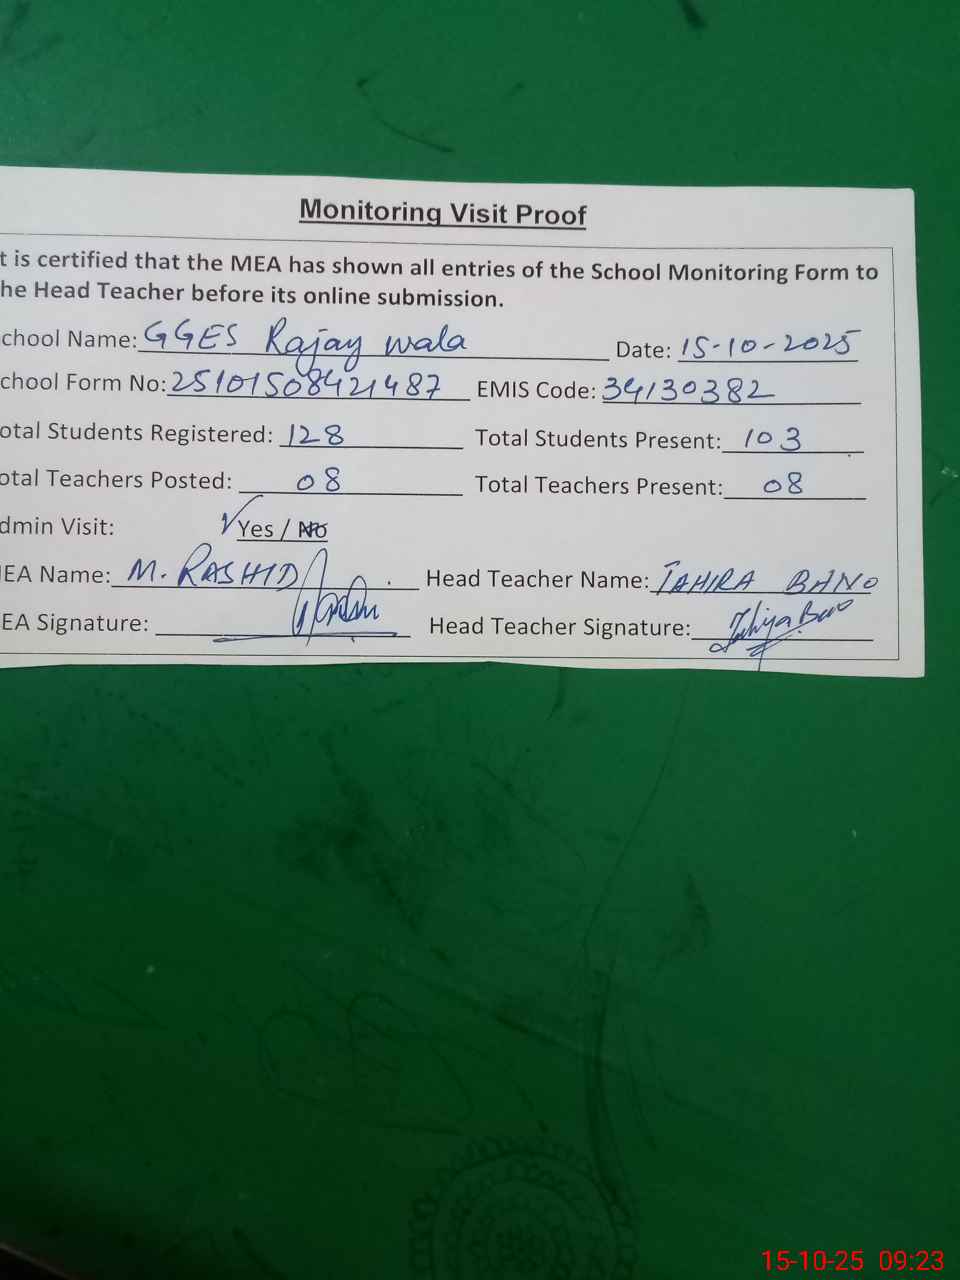 Monitoring Visit Proof
t is certified that the MEA has shown all entries of the School Monitoring Form to
he Head Teacher before its online submission.
chool Name: GGES Rajay wala Date: 15-10-2025
chool Form No: 25101508421487 EMIS Code: 34130382
otal Students Registered: 128 Total Students Present: 103
otal Teachers Posted: 08 Total Teachers Present: 08
dmin Visit: Yes / No
EA Name: M. RASHID Head Teacher Name: TAHIRA BANO
EA Signature: Head Teacher Signature:
15-10-25 09:23